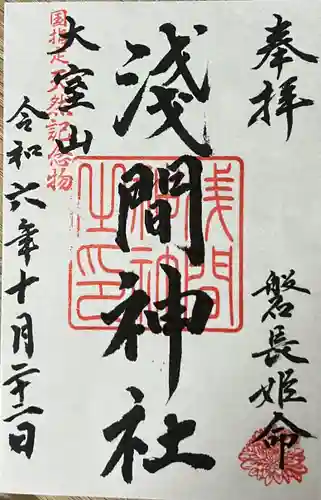 奉拝
磐長姫命
淺間神社
浅間神社之印
国指定天然記念物
大室山
令和六年十月二十二日